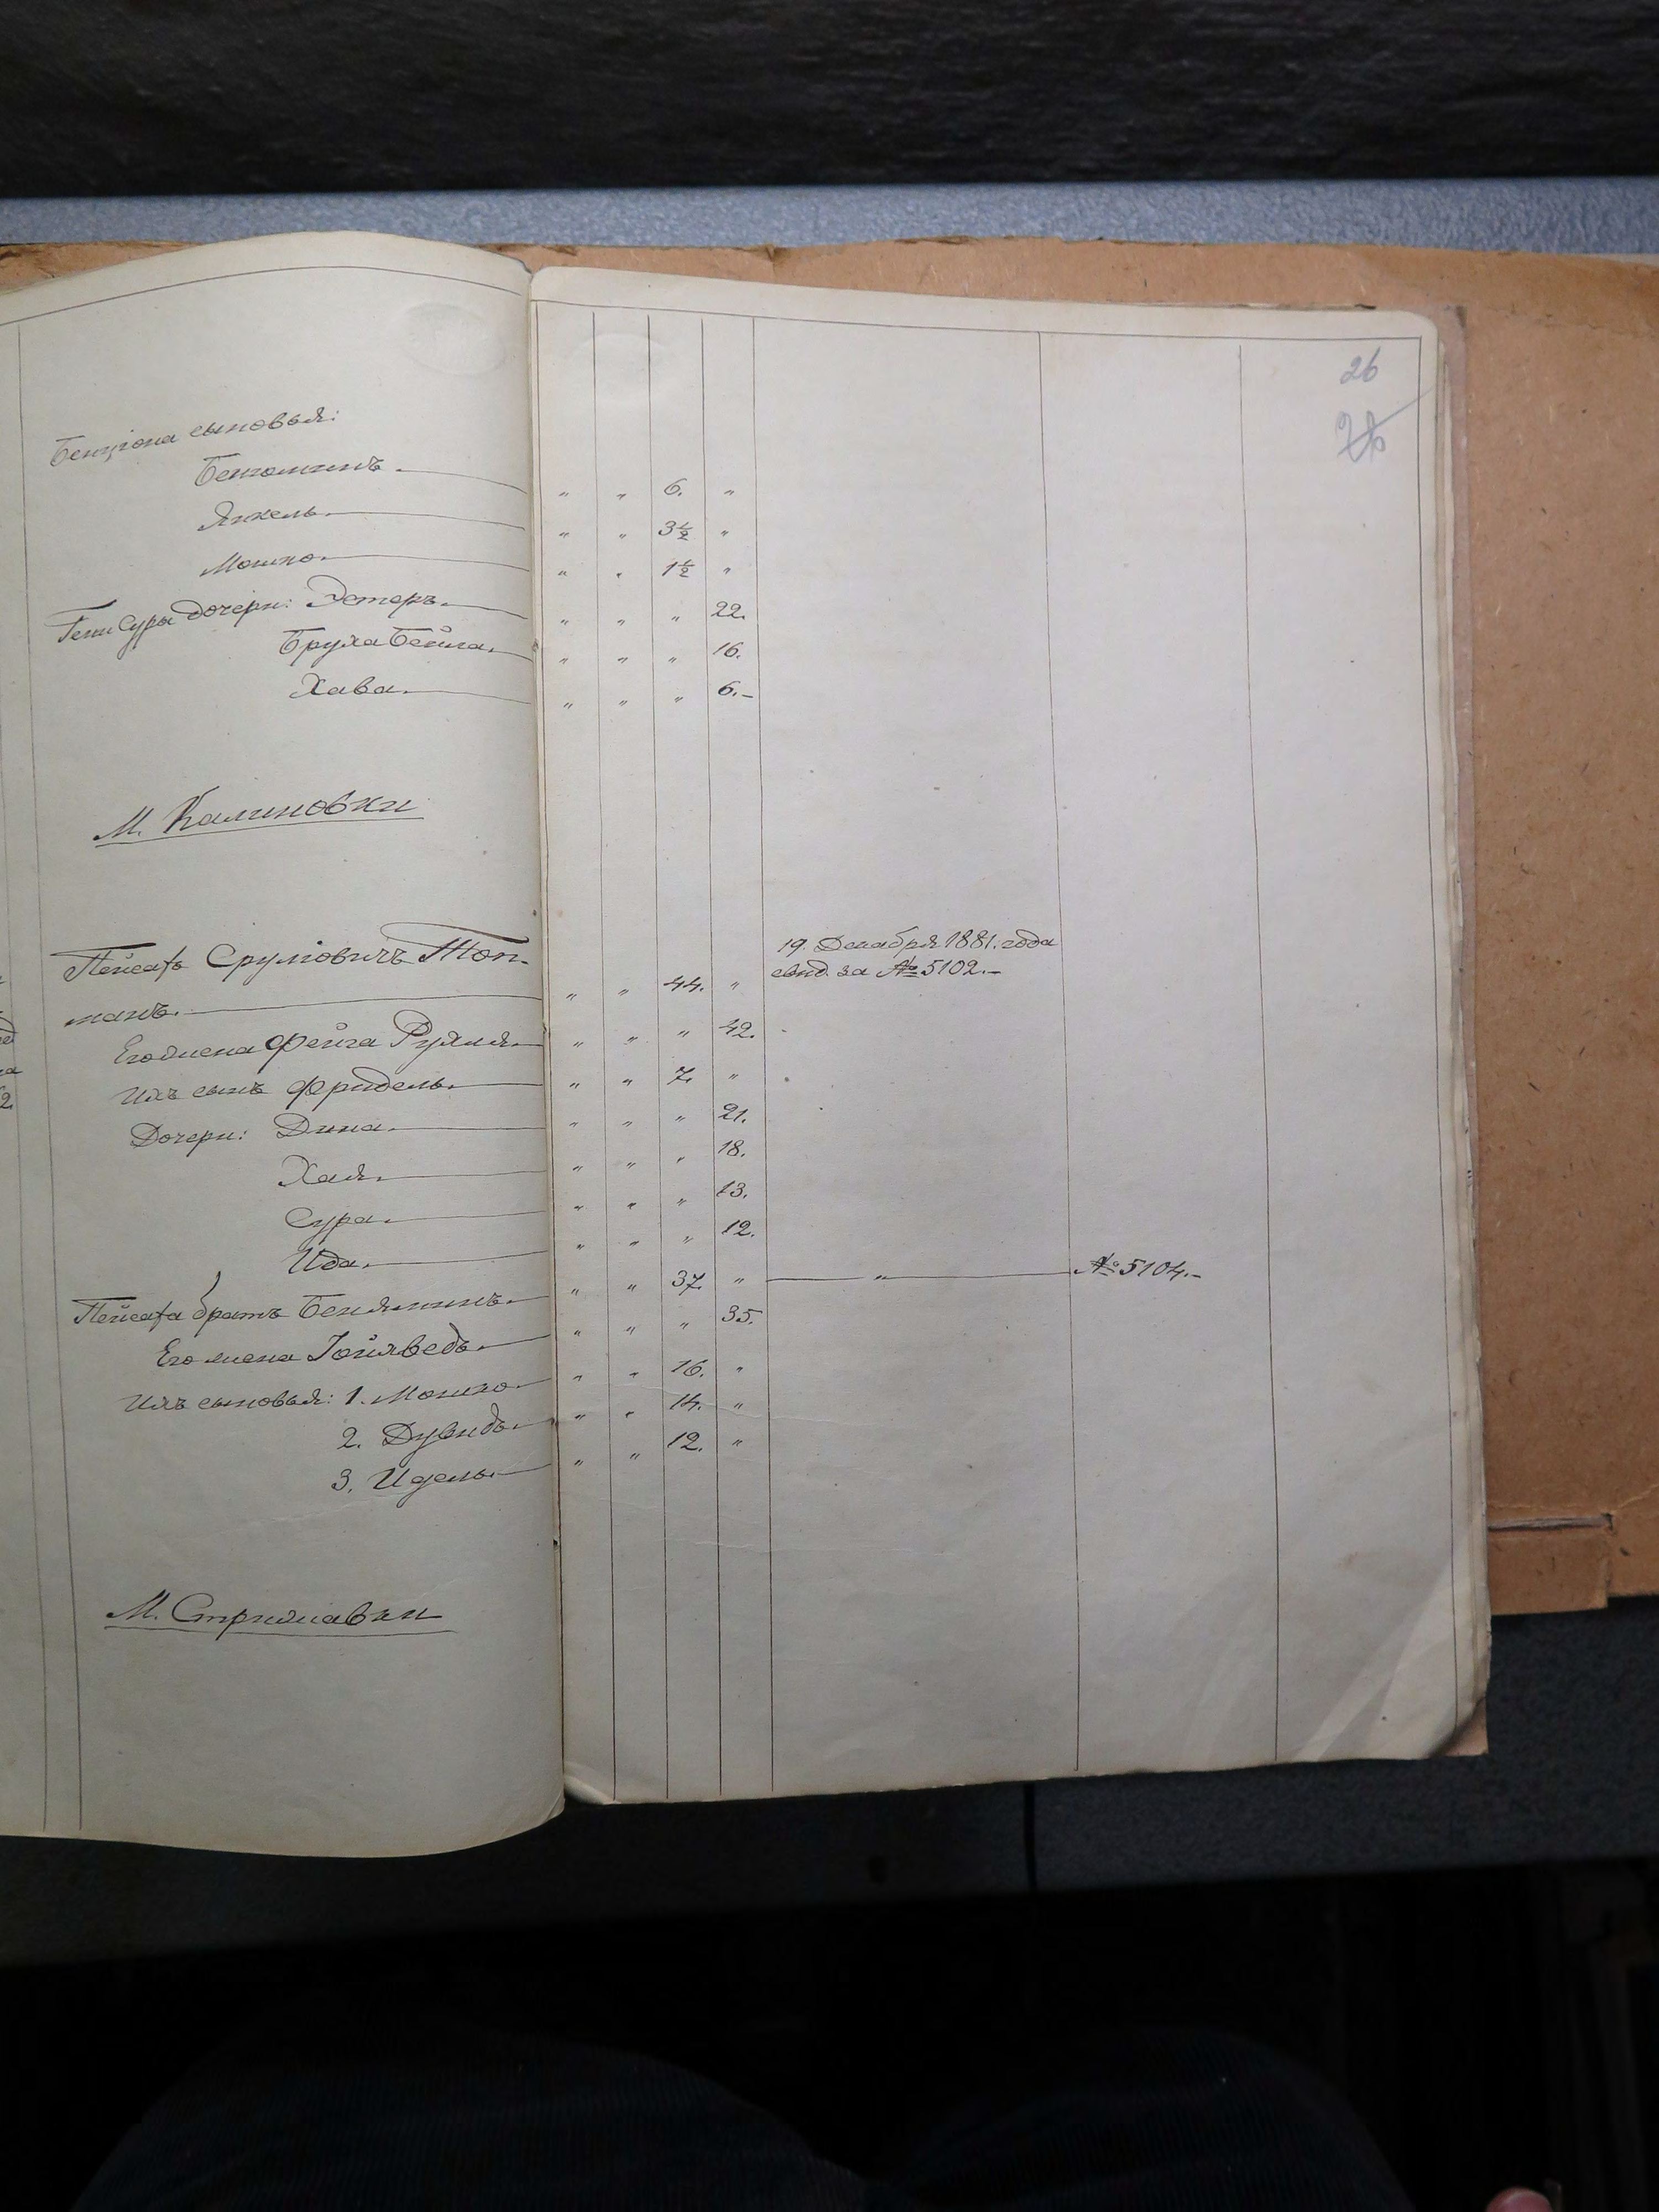 26
26
Бенціона сыновья:
Беніоминъ. " " 6. "
Янкель. " " 3½ "
Мошко. " " 1½ "
Гени Суры дочери: Эстеръ. " " " 22.
Бруха Бейла. " " " 16.
Хава. " " " 6.-
М. Калиновки
Пейсахъ Сруліовичъ Топ- 19. Декабря 1881. года
манъ. " " 44. " свид. за № 5102.-
Его жена Фейга Рухля. " " " 42.
Ихъ сынъ Фридель. " " 7. "
Дочери: Дина. " " " 21.
Хая. " " " 18.
Сура. " " " 13.
Ида. " " " 12.
Пейсаха братъ Беняминъ. " " 37. " " № 5104.-
Его жена " " " 35.
Ихъ сыновья: 1. Мошко. " " 16. "
2. Дувидъ. " " 14. "
3. Идель. " " 12. "
М. Стрижавки